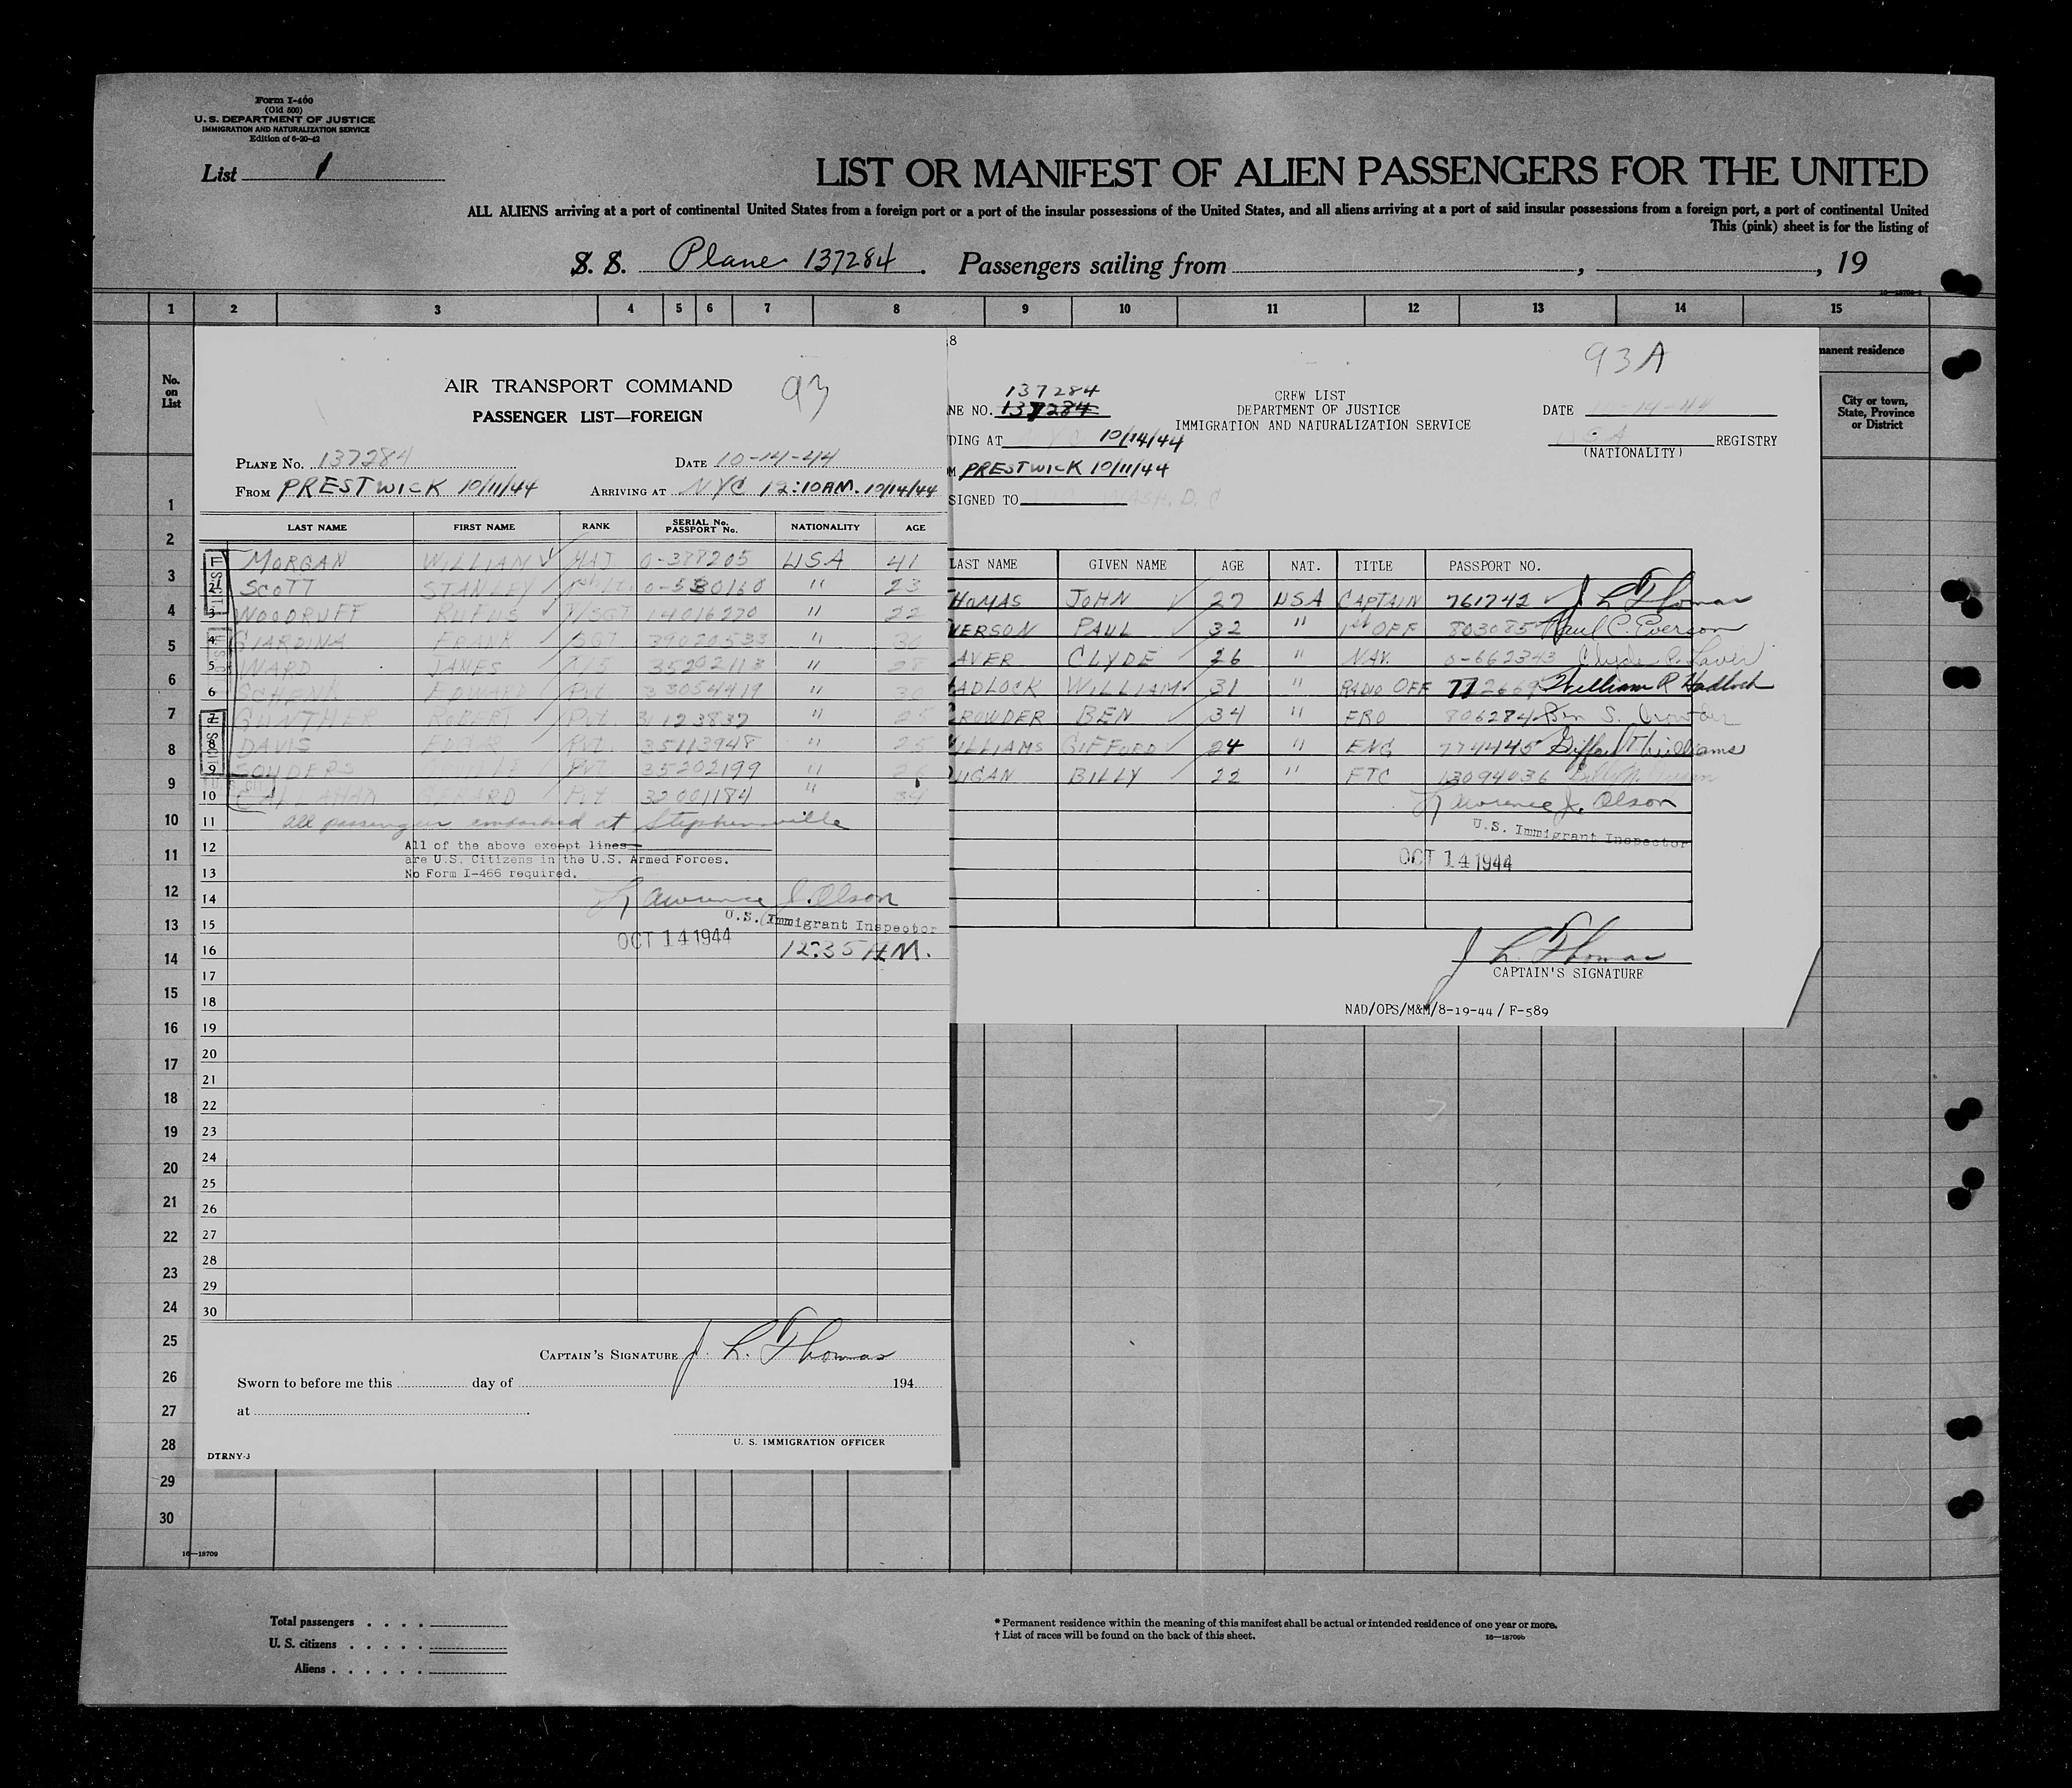 Form I-400
(Old 500)
U. S. DEPARTMENT OF JUSTICE
IMMIGRATION AND NATURALIZATION SERVICE
Edition of 6-20-42
List 1
LIST OR MANIFEST OF ALIEN PASSENGERS FOR THE UNITED
ALL ALIENS arriving at a port of continental United States from a foreign port or a port of the insular possessions of the United States, and all aliens arriving at a port of said insular possessions from a foreign port, a port of continental United
This (pink) sheet is for the listing of
S. S. Plane 137284. Passengers sailing from , , 19
1 2 3 4 5 6 7 8 9 10 11 12 13 14 15
No. on List
manent residence
City or town, State, Province or District
AIR TRANSPORT COMMAND 93
PASSENGER LIST—FOREIGN
PLANE NO. 137284 DATE 10-14-44
FROM PRESTWICK 10/11/44 ARRIVING AT NYC 12:10AM. 10/14/44
LAST NAME FIRST NAME RANK SERIAL No. PASSPORT No. NATIONALITY AGE
1 MORGAN WILLIAM MAJ 0-388205 USA 41
2 SCOTT STANLEY 1st Lt. 0-530160 " 23
3 WOODRUFF RUFUS T/SGT 14016270 " 22
4 GIARDINA FRANK SGT 39020533 "
5 WARD JAMES 35202113 " 28
6 SCHENK EDWARD Pvt 33054419 " 30
7 GUNTHER ROBERT Pvt. 31123832 " 25
8 DAVIS EDGAR Pvt. 35113948 " 25
9 SOUDERS Pvt 35202199 "
10 CALLAHAN GERARD Pvt 32001184 " 34
11 All passengers embarked at Stephenville
12 All of the above except lines
are U.S. Citizens in the U.S. Armed Forces.
13 No Form I-466 required.
14 Lawrence J. Olson
15 U.S. Immigrant Inspector
OCT 14 1944
16 12:35 A.M.
17
18
19
20
21
22
23
24
25
26
27
28
29
30
CAPTAIN'S SIGNATURE J. L. Thomas
Sworn to before me this day of 194
at
U. S. IMMIGRATION OFFICER
DTRNY-3
8
93A
137284
NE NO. 137284
CREW LIST
DEPARTMENT OF JUSTICE
IMMIGRATION AND NATURALIZATION SERVICE
DATE 10-14-44
DING AT NYC 10/14/44
USA REGISTRY
(NATIONALITY)
M PRESTWICK 10/11/44
SIGNED TO WASH. D. C
LAST NAME GIVEN NAME AGE NAT. TITLE PASSPORT NO.
HOMAS JOHN 27 USA CAPTAIN 761742 J L Thomas
VERSON PAUL 32 " 1st OFF 803085 Paul C. Everson
AVER CLYDE 26 " NAV. 0-662343 Clyde P. Laver
ADLOCK WILLIAM 31 " RADIO OFF 772669 William R Hadlock
ROWDER BEN 34 " FRO 806284 Ben S. Crowder
ILLIAMS GIFFORD 24 " ENG 774445 Gifford T Williams
DUGAN BILLY 22 " FTC 13094036
Lawrence J. Olson
U.S. Immigrant Inspector
OCT 14 1944
J L Thomas
CAPTAIN'S SIGNATURE
NAD/OPS/M&M/8-19-44 / F-589
1
2
3
4
5
6
7
8
9
10
11
12
13
14
15
16
17
18
19
20
21
22
23
24
25
26
27
28
29
30
16—18709
Total passengers . . . .
U. S. citizens . . . . .
Aliens . . . . . .
* Permanent residence within the meaning of this manifest shall be actual or intended residence of one year or more.
† List of races will be found on the back of this sheet.
16—18709b